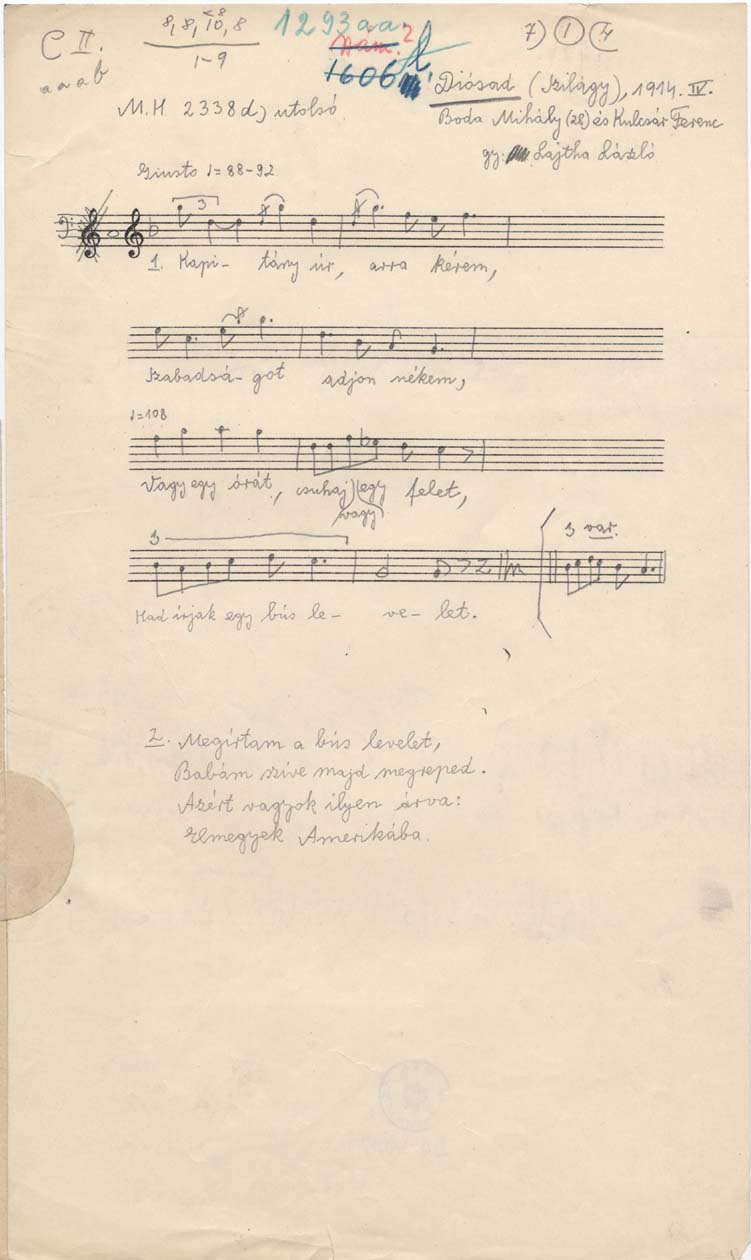 C II.
a a a b
8, 8, 10, 8
<8
1-9
1293aa.
Nám.?
1606
7) 1 4
Diósad (Szilágy), 1914. IV.
M.H. 2338d) utolsó
Boda Mihály (28) és Kulcsár Ferenc
gy: Lajtha László
Giusto ♩=88-92
3
1. Kapi- tány úr, arra kérem,
Szabadsá- got adjon nékem,
♩=108
Vagy egy órát, csuhaj) (egy felet,
vagy
3
3 var.
Had írjak egy bús le- ve- let.
2. Megírtam a bús levelet,
Babám szíve majd megreped.
Azért vagyok ilyen árva:
Elmegyek Amerikába.